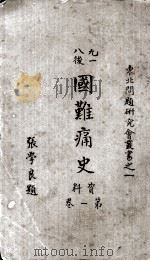 東北問題研究會叢書之一
九一八後
國難痛史
資料
第一卷
張學良題